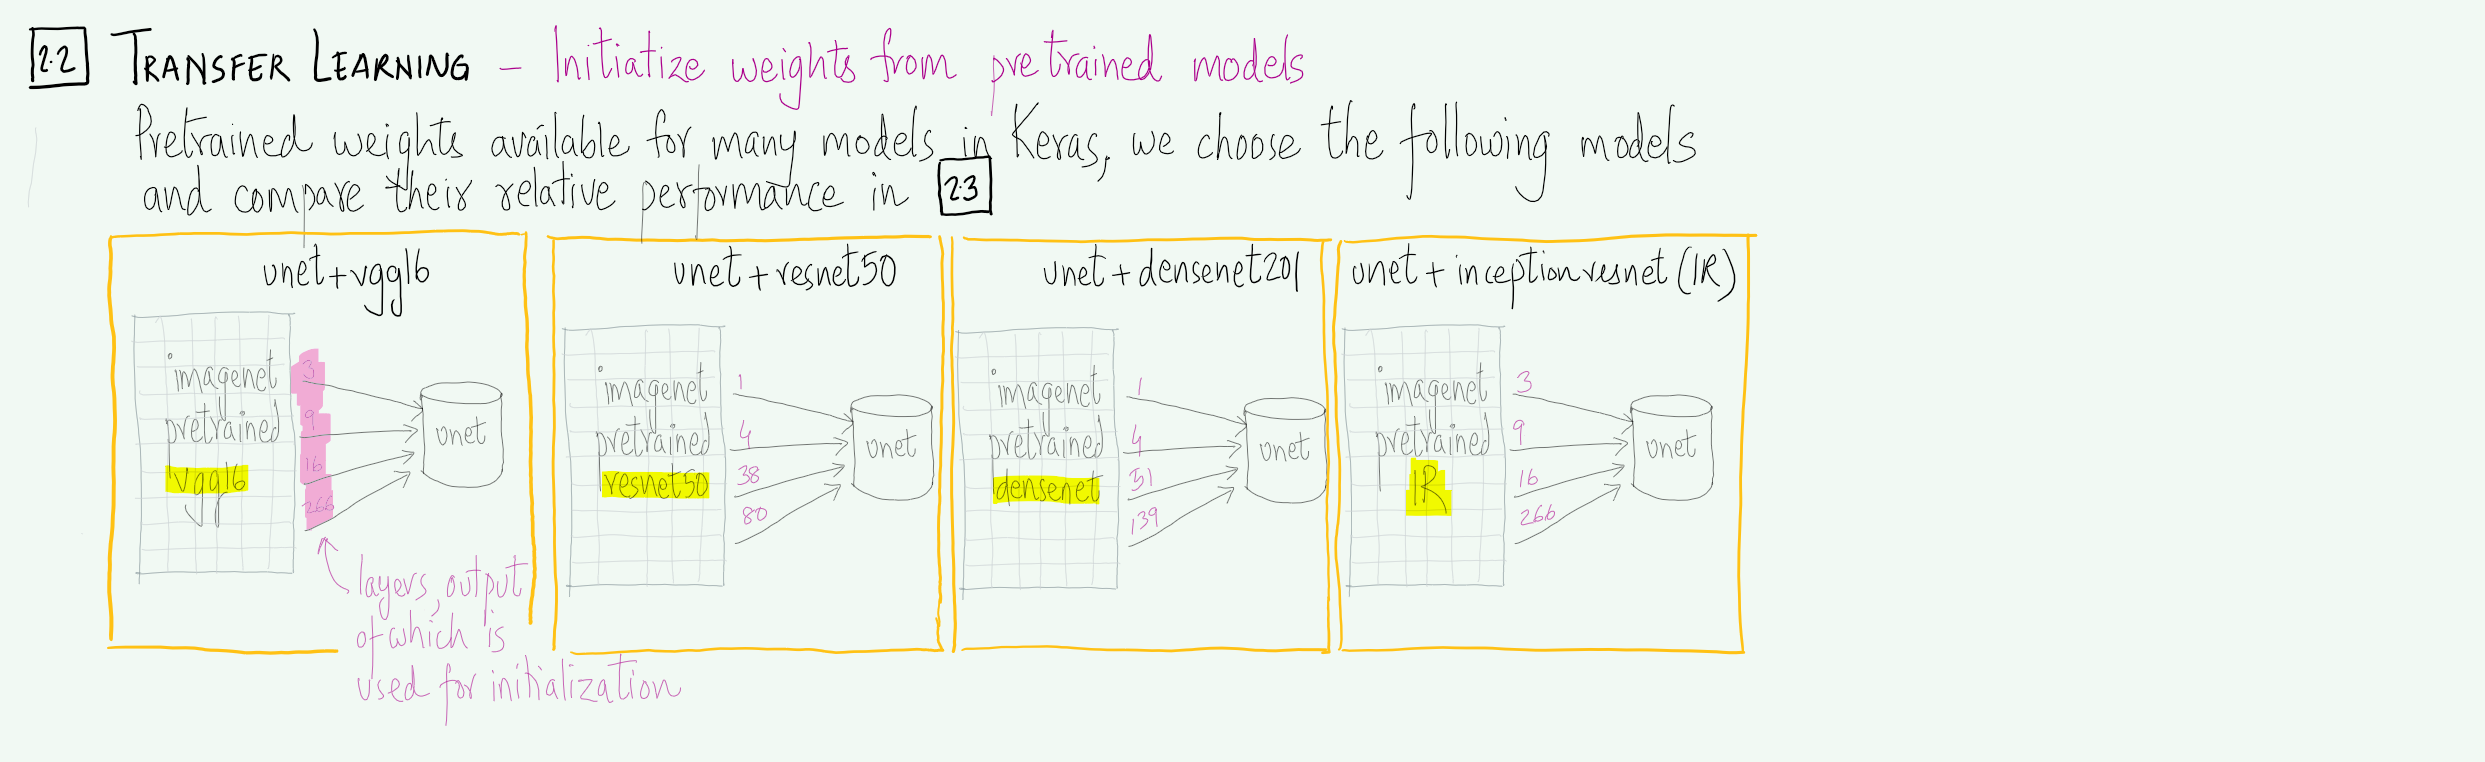 2.2 TRANSFER LEARNING - Initiatize weights from pretrained models
Pretrained weights available for many models in Keras, we choose the following models
and compare their relative performance in 2.3
unet+vgg16
imagenet
pretrained
vgg16
3
9
16
266
unet
layers, output
of which is
used for initialization
unet+resnet50
imagenet
pretrained
resnet50
1
4
38
80
unet
unet+densenet201
imagenet
pretrained
densenet
1
4
51
139
unet
unet+inceptionresnet (IR)
imagenet
pretrained
IR
3
9
16
266
unet